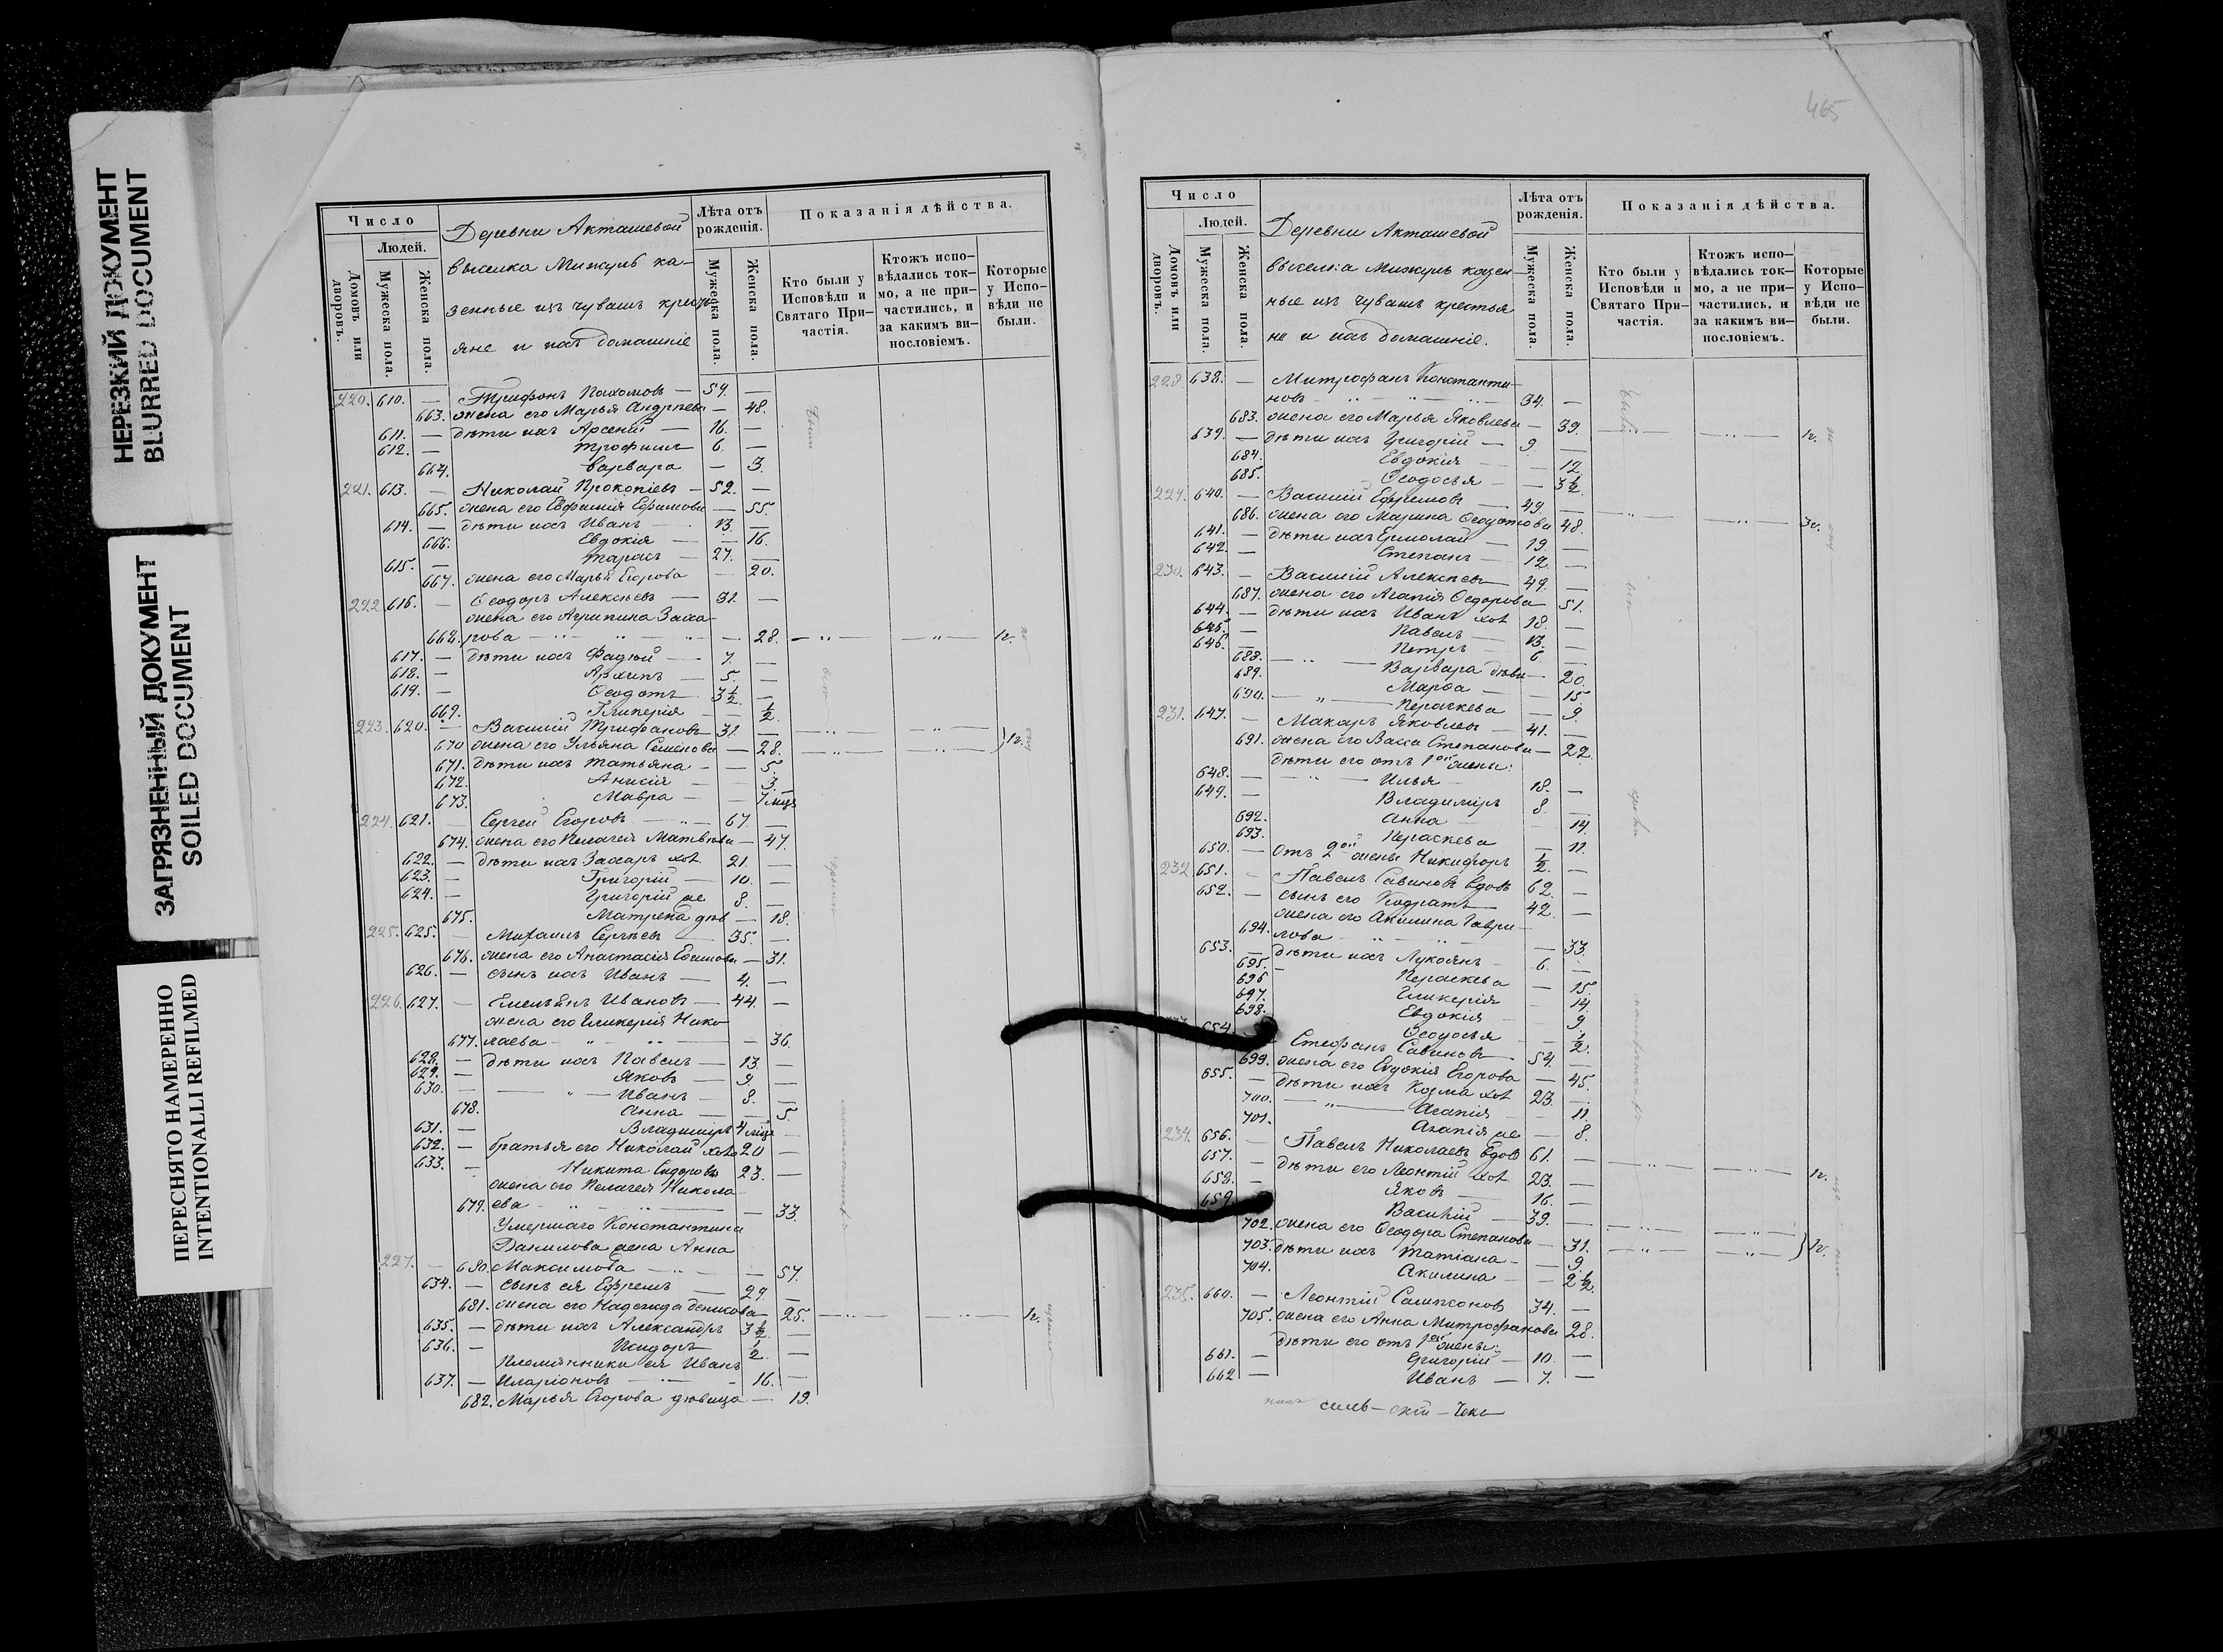 НЕРЕЗКИЙ ДОКУМЕНТ
BLURRED DOCUMENT
ЗАГРЯЗНЕННЫЙ ДОКУМЕНТ
SOILED DOCUMENT
ПЕРЕСНЯТО НАМЕРЕННО
INTENTIONALLI REFILMED
Число
Людей.
Домовъ или дворовъ.
Мужеска пола.
Женска пола.
Деревни Акташевой
выселка Мижуль ка-
зенные изъ чувашъ кресть
яне и ихъ домашніе
Лѣта отъ рожденія.
Мужеска пола.
Женска пола.
Показанія дѣйства.
Кто были у Исповѣди и Святаго Причастія.
Ктожъ исповѣдались токмо, а не причастились, и за какимъ винословіемъ.
Которые у Исповѣди не были.
220. 610. — Трифонъ Пахомовъ — 54. —
663. жена его Марья Андреева — 48.
611. — дѣти ихъ Арсеній — 16. —
612. — Трофимъ 6. —
664. Варвара — 3.
221. 613. — Николай Прокопіевъ — 52. —
665. жена его Евфимія Ефимова — 55.
614. — дѣти ихъ Иванъ — 13. —
666. Евдокія — — 16.
615. — Тарасъ — 27. —
667. жена его Марья Егорова — 20.
222. 616. — Ѳеодоръ Алексѣевъ — 31. —
жена его Агрипина Заха-
668. рова — 28. — „ — — „ — 1г.
617. — дѣти ихъ Фадей — 7. —
618. — Архипъ — 5. —
619. — Ѳеодотъ 3 1/2 —
669. Гликерія — 1/2.
223. 620. — Василій Трифановъ 31. —
670 жена его Ульяна Семенова — 28. } 1г.
671. дѣти ихъ Татьяна — — 5.
672. Анисія — 3.
673. Мавра — — 7 мцъ
224. 621. — Сергей Егоровъ — 67. —
674. жена его Пелагея Матвѣева — 47.
622. — дѣти ихъ Захаръ хол 21. —
623. — Григорій — 10. —
624. — Григорій же 8. —
675. Матрена дѣв — 18.
225. 625. — Михаилъ Сергѣевъ — 35. —
676. жена его Анастасія Ефимова — 31.
626. — сынъ ихъ Иванъ — 4. —
226. 627. — Емельянъ Ивановъ — 44. —
жена его Гликерія Нико-
677. лаева — „ — 36.
628. — дѣти ихъ Павелъ — 13. —
629. — Яковъ — 9. —
630. — „ — Иванъ — 8. —
678. Анна — — 5.
631. — Владиміръ 4 мцъ —
632. — братья его Николай хол 20 —
633. — Никита Сидоровъ 23. —
жена его Пелагея Никола
679. ева — „ — 33.
Умершаго Константина
Данилова жена Анна
227. — 680. Максимова — „ — 57.
634. — сынъ ея Ефремъ — 29. —
681. жена его Надежда — 25. — „ — — „ — 1г.
635. — дѣти ихъ Александръ 3 1/2 —
636. — Исидоръ — 1/2. —
племянники ея Иванъ
637. — Иларіоновъ — „ — 16. —
682. Марья Егорова дѣвица — 19.
465
Число
Людей.
Домовъ или дворовъ.
Мужеска пола.
Женска пола.
Деревни Акташевой
выселка Мижуль казен-
ные изъ чувашъ крестья
не и ихъ домашніе.
Лѣта отъ рожденія.
Мужеска пола.
Женска пола.
Показанія дѣйства.
Кто были у Исповѣди и Святаго Причастія.
Ктожъ исповѣдались токмо, а не причастились, и за какимъ винословіемъ.
Которые у Исповѣди не были.
228. 638. — Митрофанъ Константи-
новъ — 34. —
683. жена его Марья Яковлева — 39. — „ — 1г.
639. — дѣти ихъ Григорій — 9. —
684. Евдокія — — 12.
685. Ѳеодосья — — 3 1/2.
229. 640. — Василій Ефремовъ — 49. —
686. жена его Марина Ѳедотова 48. — „ — — „ — 3г.
641. — дѣти ихъ Ермолай — 19. —
642. — Степанъ — 12. —
230. 643. — Василій Алексѣевъ — 49. —
687. жена его Агапія Ѳедорова — 51.
644. — дѣти ихъ Иванъ хол 18. —
645. — Павелъ — 13. —
646. — Петръ — 6. —
688. — „ — Варвара дѣви — 20.
689. Марѳа — — 15.
690. — „ — Пераскева — 9.
231. 647. — Макаръ Яковлевъ — 41. —
691. жена его Васса Степанова — 22.
дѣти его отъ 1ой жены:
648. — „ — Илья — 18. —
649. — Владиміръ 8. —
692. Анна — 14.
693. Пераскева — 11.
650. — Отъ 2ой жены Никифоръ 1/2. —
232. 651. — Павелъ Савиновъ вдовъ 62. —
652. — сынъ его Кодратъ — 42. —
жена его Акилина Гаври-
694. лова — „ — 33.
653. — дѣти ихъ Лукоянъ — 6. —
695. — Пераскева — 15.
696 Гликерія — 14.
697. Евдокія — 9.
698. Ѳеодосья — 1/2.
654. Стефанъ Савиновъ — 54. —
699. жена его Евдокія Егорова — 45.
655. — дѣти ихъ Козма хол 23. —
700. — „ — Агапія — 11.
701. Агапія же — 8.
234. 656. — Павелъ Николаевъ вдов 61. —
657. — дѣти его Леонтій хол 23. — „ — — „ — 1г.
658. — Яковъ — 16. —
659 Василій — 39. —
702. жена его Ѳеодора Степанова — 31. } 1г.
703. дѣти ихъ Татіана — — 9.
704. Акилина — — 2 1/2.
235. 660. — Леонтій Сампсоновъ 34. —
705. жена его Анна Митрофанова 28.
дѣти его отъ 1ой жены:
661. — Григорій — 10. —
662 — Иванъ — 7. —